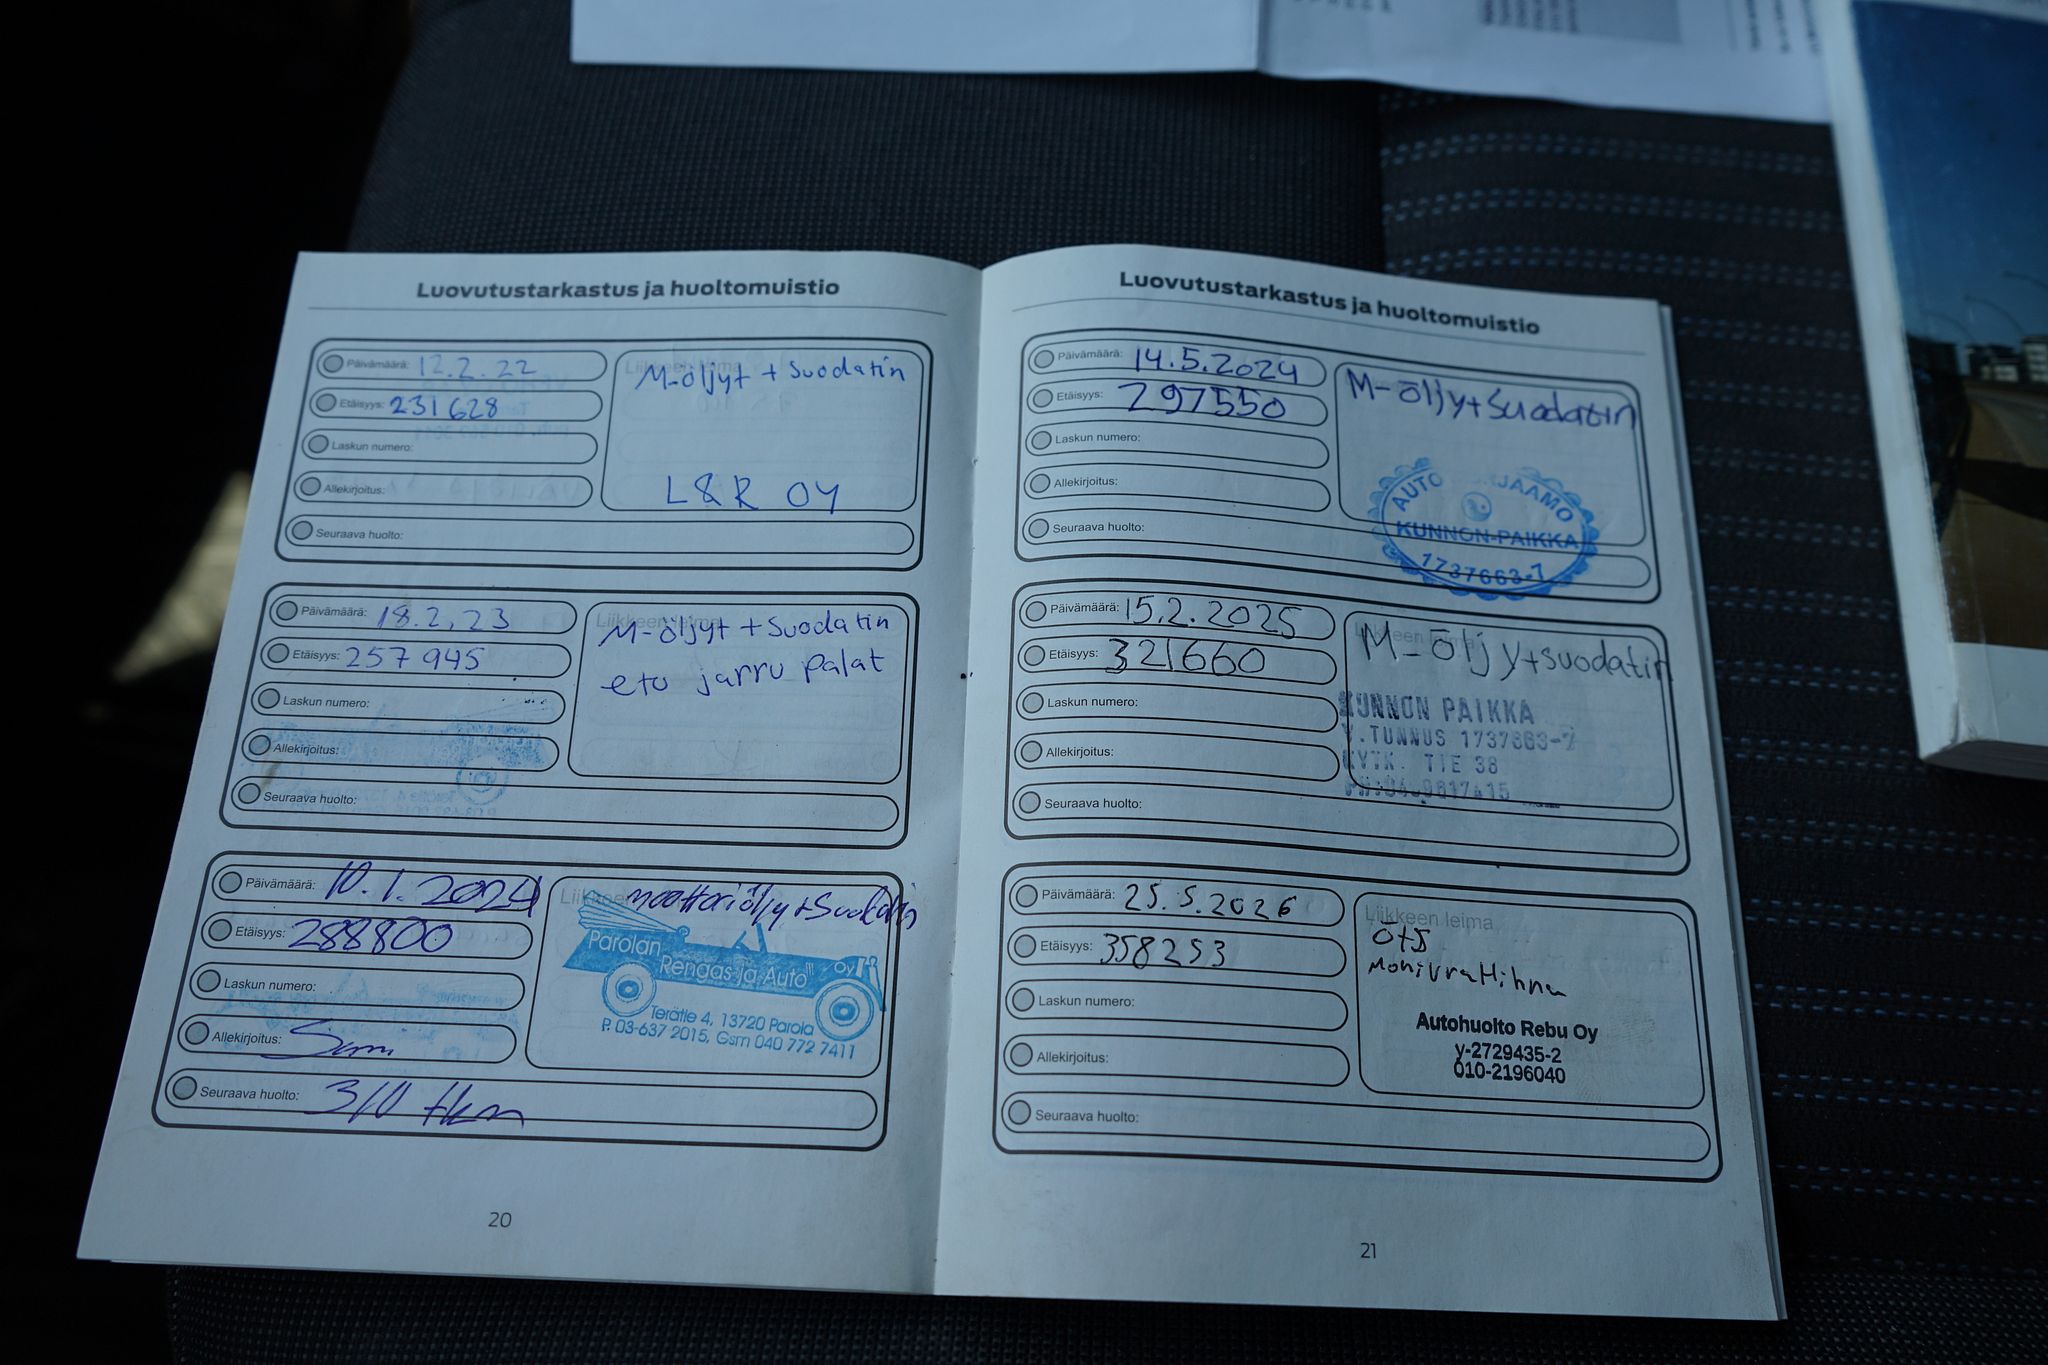 Luovutustarkastus ja huoltomuistio
Päivämäärä: 12.2.22
Etäisyys: 231628
Laskun numero:
Allekirjoitus:
Seuraava huolto:
Liikkeen leima
M-öljyt + Suodatin
L&R OY
Päivämäärä: 18.2.23
Etäisyys: 257945
Laskun numero:
Allekirjoitus:
Seuraava huolto:
Liikkeen leima
M-öljyt + Suodatin
etu jarru palat
Päivämäärä: 10.1.2024
Etäisyys: 288800
Laskun numero:
Allekirjoitus: Sami
Seuraava huolto: 310 tkm
moottoriöljy + Suodatin
Parolan
Rengas ja Auto Oy
Terätie 4, 13720 Parola
P. 03-637 2015, Gsm 040 772 7411
20
Luovutustarkastus ja huoltomuistio
Päivämäärä: 14.5.2024
Etäisyys: 297550
Laskun numero:
Allekirjoitus:
Seuraava huolto:
M-öljy + Suodatin
AUTO JAAMO
KUNNON-PAIKKA
1737663-7
Päivämäärä: 15.2.2025
Etäisyys: 321660
Laskun numero:
Allekirjoitus:
Seuraava huolto:
M-öljy + suodatin
KUNNON PAIKKA
Y.TUNNUS 1737663-7
TIE 38
Päivämäärä: 25.5.2026
Etäisyys: 358253
Laskun numero:
Allekirjoitus:
Seuraava huolto:
Liikkeen leima
Ö+S
Moniurahihna
Autohuolto Rebu Oy
y-2729435-2
010-2196040
21